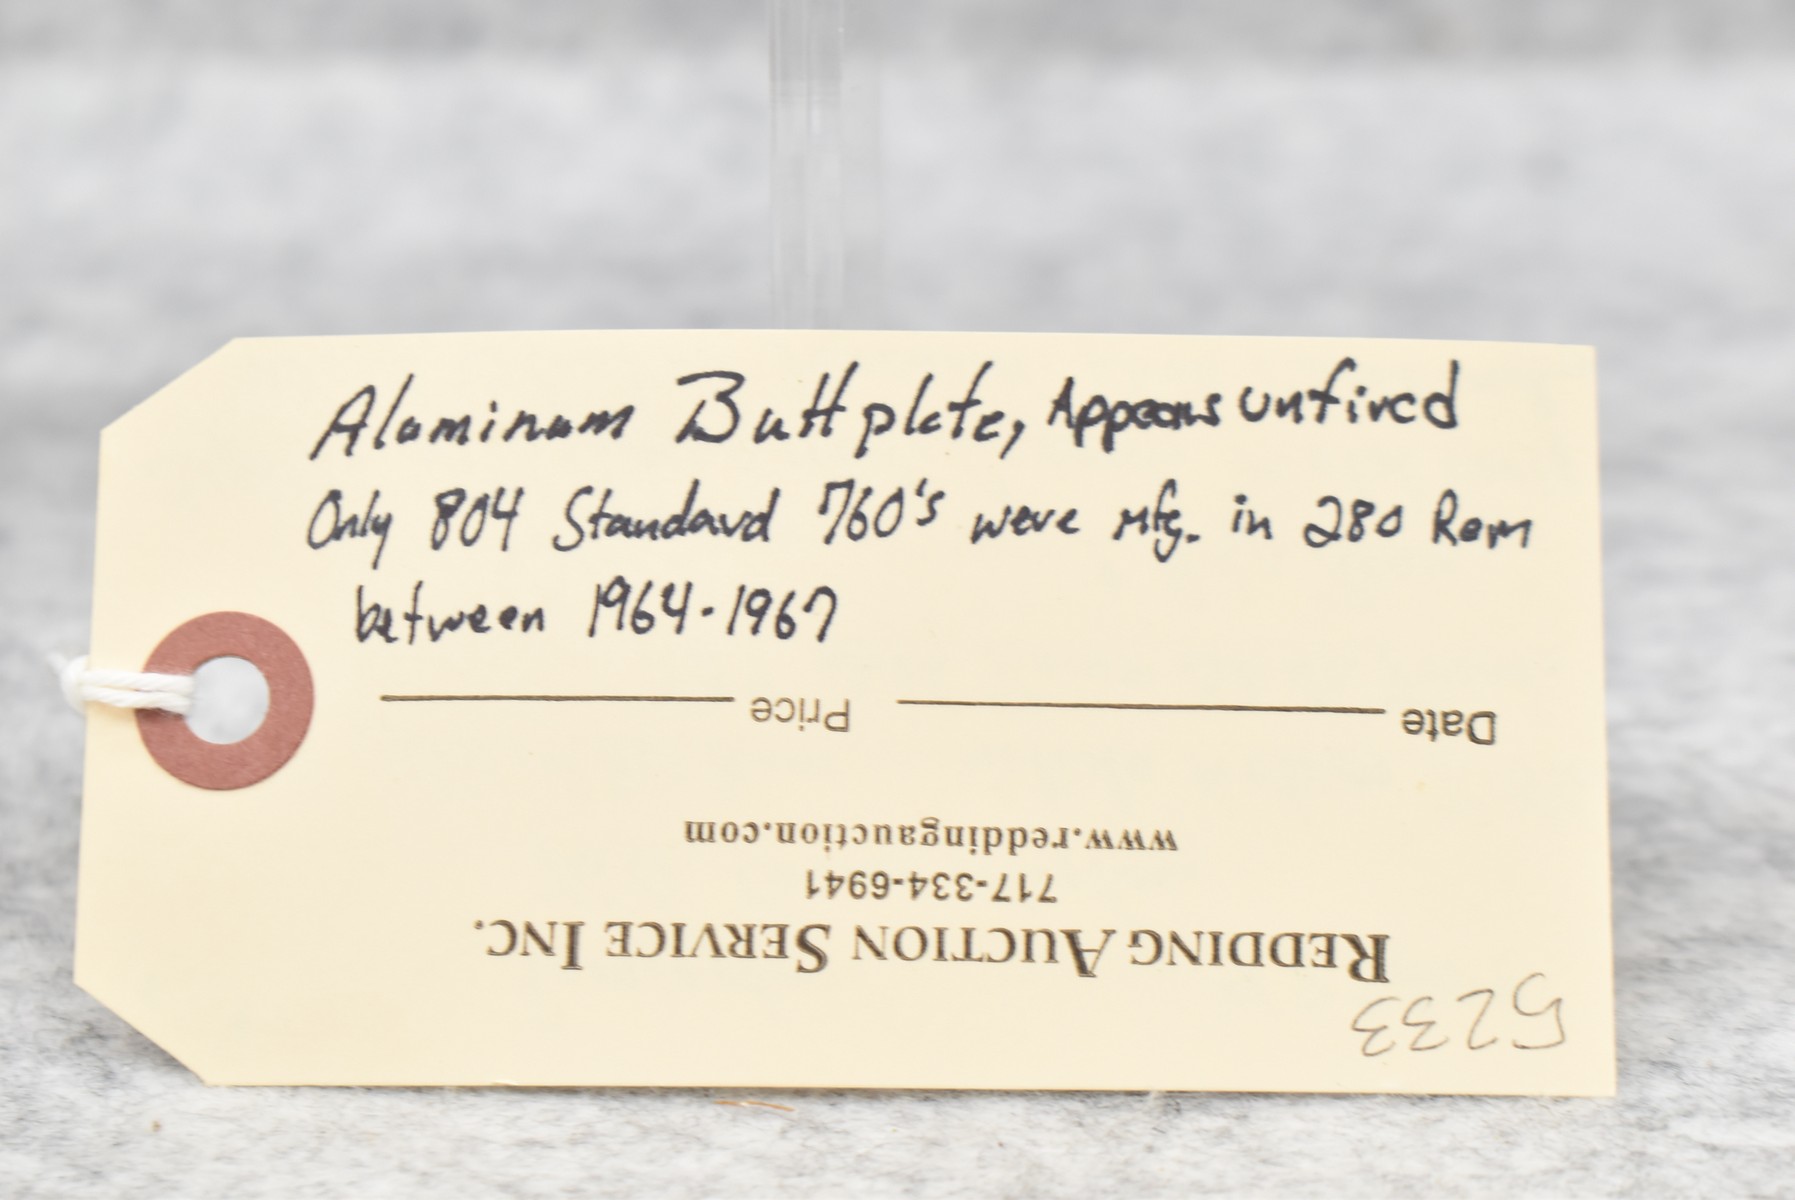 Aluminum Buttplate, Appears unfired
Only 804 Standard 760's were mfg. in 280 Rem
between 1964-1967
5233
REDDING AUCTION SERVICE INC.
717-334-6941
www.reddingauction.com
Date Price